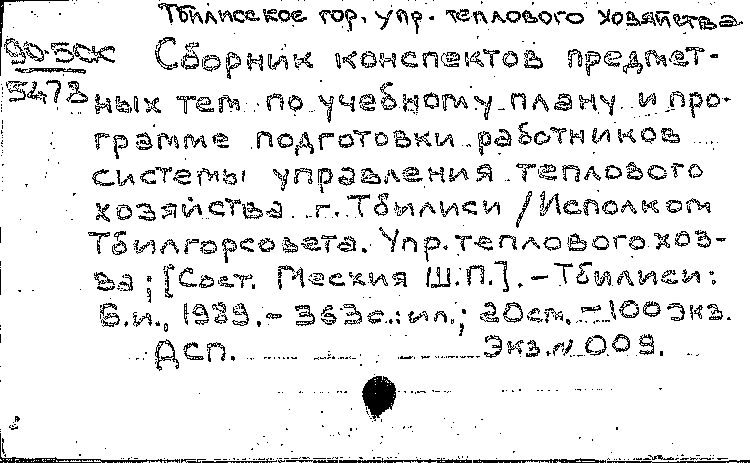 Тбилисское гор. упр. теплового хозяйства
90-5СК Сборник конспектов предмет-
5478 ных тем по учебному плану и про-
грамме подготовки работников
системы управления теплового
хозяйства г. Тбилиси / Исполком
Тбилгорсовета. Упр. теплового хоз-
ва; [Сост. Месхия Ш.П.]. - Тбилиси:
Б.и., 1989. - 353 с.: ил.; 20 см. - 100 экз.
ДСП. Экз. N 009.